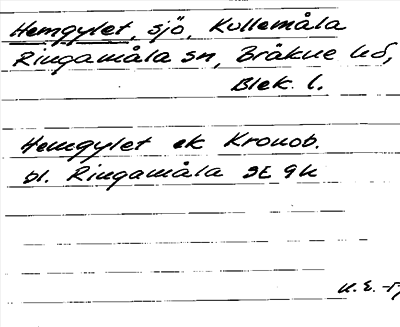 Hemgylet, sjö, Kullemåla
Ringamåla sn, Bräkne hd,
Blek. l.
Hemgylet ek Kronob.
bl. Ringamåla 3E 9h